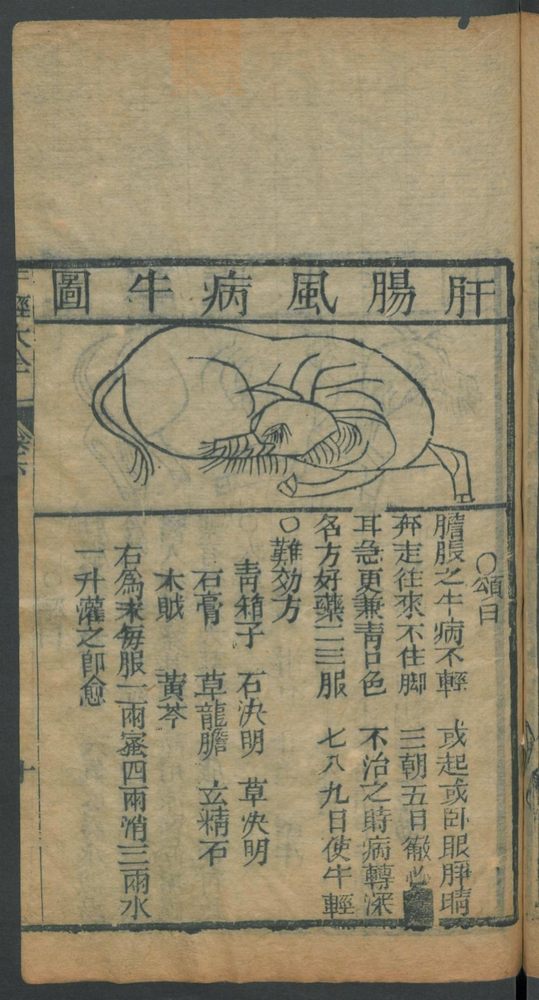 肝腸風病牛圖
○頌曰
膽脹之牛病不輕 或起或卧眼睁晴
奔走往來不住脚 三朝五日徹
耳急更兼青口色 不治之時病轉深
名方好藥二三服 七八九日使牛輕
○難効方
青箱子 石决明 草决明
石膏 草龍膽 玄精石
木賊 黄芩
右為末每服二兩蜜四兩消三兩水
一升灌之即愈
經大全
十